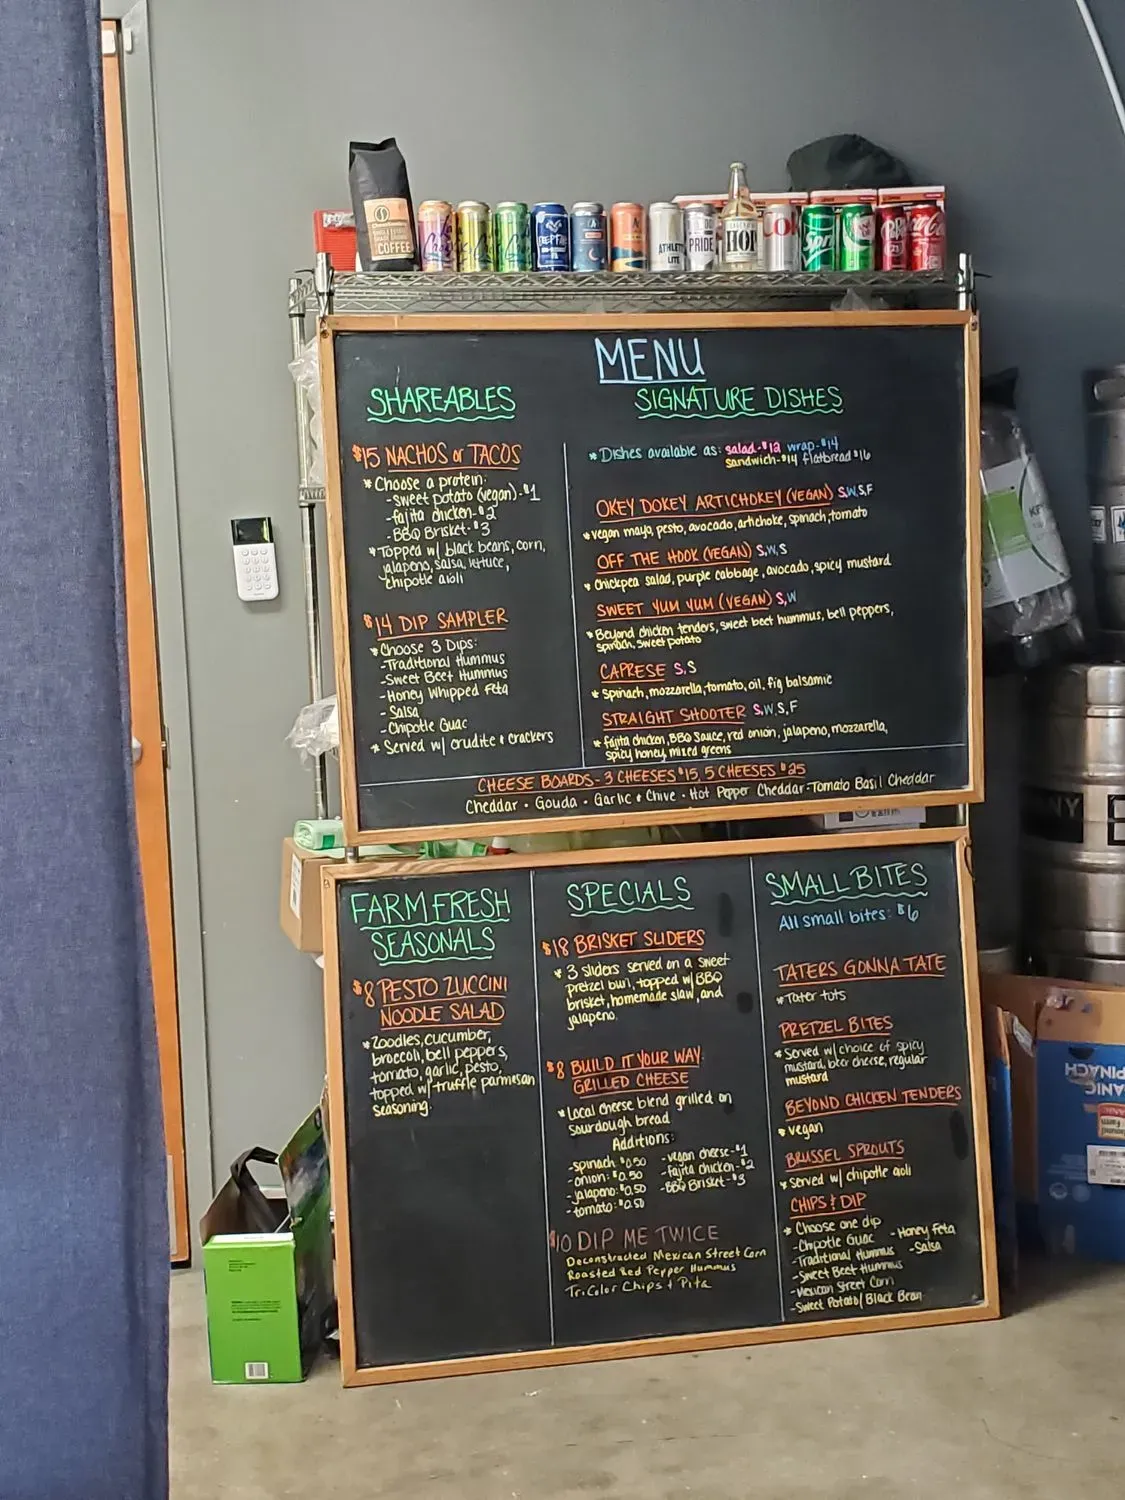 COFFEE
ATHLETIC
LITE
PRIDE
HOP
MENU
SHAREABLES
$15 NACHOS or TACOS
* Choose a protein:
-sweet potato (vegan)-$1
-fajita chicken-$2
-BBQ Brisket-$3
* Topped w/ black beans, corn,
jalapeno, salsa, lettuce,
chipotle aioli
$14 DIP SAMPLER
* Choose 3 Dips:
-Traditional Hummus
-Sweet Beet Hummus
-Honey Whipped Feta
-Salsa
-Chipotle Guac
* Served w/ crudite & crackers
SIGNATURE DISHES
* Dishes available as: salad-$12 wrap-$14
sandwich-$14 flatbread $16
OKEY DOKEY ARTICHOKEY (VEGAN) S,W,S,F
* vegan mayo, pesto, avocado, artichoke, spinach, tomato
OFF THE HOOK (VEGAN) S,W,S
* Chickpea salad, purple cabbage, avocado, spicy mustard
SWEET YUM YUM (VEGAN) S,W
* Beyond chicken tenders, sweet beet hummus, bell peppers,
spinach, sweet potato
CAPRESE S,S
* Spinach, mozzarella, tomato, oil, fig balsamic
STRAIGHT SHOOTER S,W,S,F
* fajita chicken, BBQ sauce, red onion, jalapeno, mozzarella,
spicy honey, mixed greens
CHEESE BOARDS- 3 CHEESES $15, 5 CHEESES $25
Cheddar · Gouda · Garlic & Chive · Hot Pepper Cheddar-Tomato Basil Cheddar
FARM FRESH
SEASONALS
$8 PESTO ZUCCINI
NOODLE SALAD
* Zoodles, cucumber,
broccoli, bell peppers,
tomato, garlic, pesto,
topped w/ truffle parmesan
seasoning.
SPECIALS
$18 BRISKET SLIDERS
* 3 sliders served on a sweet
pretzel bun, topped w/ BBQ
brisket, homemade slaw, and
jalapeno.
$8 BUILD IT YOUR WAY
GRILLED CHEESE
* Local cheese blend grilled on
sourdough bread
Additions:
-spinach $0.50 -vegan cheese-$1
-onion: $0.50 -fajita chicken-$2
-jalapeno: $0.50 -BBQ Brisket-$3
-tomato: $0.50
$10 DIP ME TWICE
Deconstructed Mexican Street Corn
Roasted Red Pepper Hummus
TriColor Chips + Pita
SMALL BITES
All small bites: $6
TATERS GONNA TATE
* Tater tots
PRETZEL BITES
* Served w/ choice of spicy
mustard, beer cheese, regular
mustard
BEYOND CHICKEN TENDERS
* vegan
BRUSSEL SPROUTS
* Served w/ chipotle aoli
CHIPS & DIP
* Choose one dip
-Chipotle Guac -Honey Feta
-Traditional Hummus -Salsa
-Sweet Beet Hummus
-Mexican Street Corn
-Sweet Potato/Black Bean